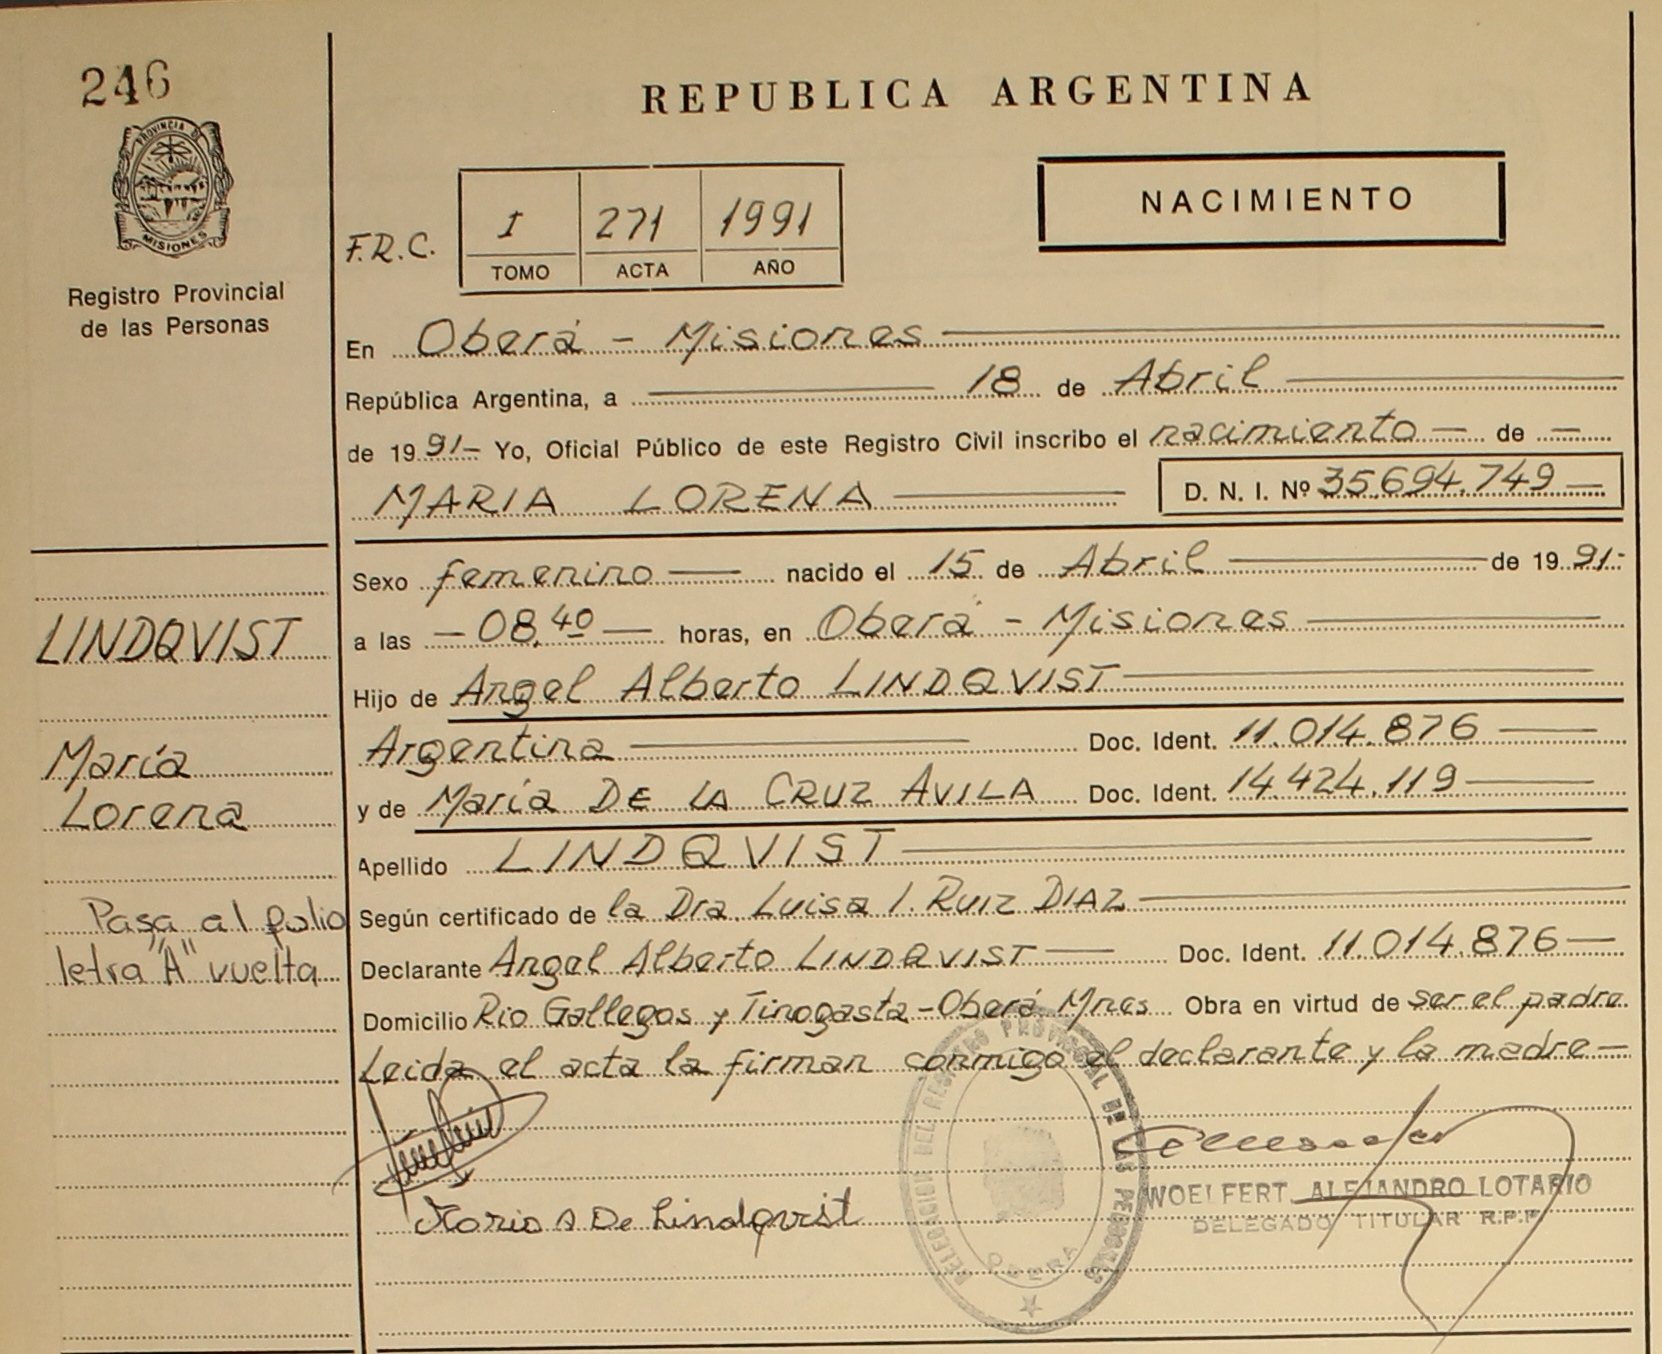 246
PROVINCIA DE
MISIONES
Registro Provincial
de las Personas
LINDQVIST
María
Lorena
Pasa al folio
letra "A" vuelta
REPUBLICA ARGENTINA
NACIMIENTO
F.R.C.
I 271 1991
TOMO ACTA AÑO
En Oberá - Misiones
República Argentina, a 18 de Abril
de 1991- Yo, Oficial Público de este Registro Civil inscribo el nacimiento — de —
MARIA LORENA D. N. I. Nº 35.694.749 —
Sexo femenino — nacido el 15 de Abril — de 1991-
a las — 08,40 — horas, en Oberá - Misiones
Hijo de Angel Alberto LINDQVIST
Argentina Doc. Ident. 11.014.876
y de María DE LA CRUZ AVILA Doc. Ident. 14.424.119
Apellido LINDQVIST
Según certificado de la Dra. Luisa I. Ruiz DIAZ
Declarante Angel Alberto LINDQVIST — Doc. Ident. 11.014.876 —
Domicilio Rio Gallegos y Tinogasta - Oberá Mnes Obra en virtud de ser el padre.
Leida el acta la firman conmigo el declarante y la madre —
DELEGACION DEL REGISTRO PROVINCIAL DE LAS PERSONAS
OBERA
WOELFERT ALEJANDRO LOTARIO
DELEGADO TITULAR R.P.P.
De Lindqvist